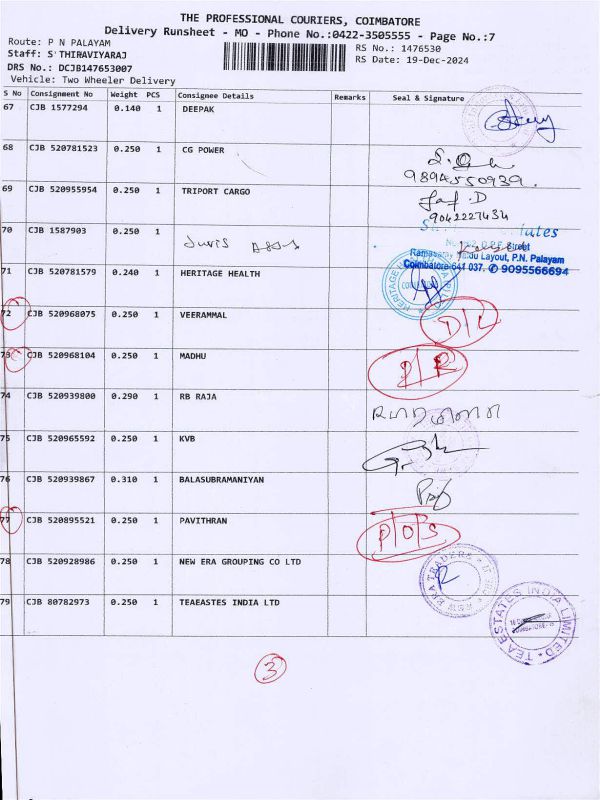 THE PROFESSIONAL COURIERS, COIMBATORE
Delivery Runsheet - MO - Phone No.:0422-3505555 - Page No.:7
Route: P N PALAYAM
Staff: S THIRAVIYARAJ
DRS No.: DCJB147653007
Vehicle: Two Wheeler Delivery
RS No.: 1476530
RS Date: 19-Dec-2024
S No Consignment No Weight PCS Consignee Details Remarks Seal & Signature
67 CJB 1577294 0.140 1 DEEPAK
68 CJB 520781523 0.250 1 CG POWER
9894550939.
69 CJB 520955954 0.250 1 TRIPORT CARGO
9042227434
70 CJB 1587903 0.250 1 Juris Assos
Street
Layout, P.N. Palayam
Coimbatore-641 037. ✆ 9095566694
71 CJB 520781579 0.240 1 HERITAGE HEALTH
HERITAGE
72 CJB 520968075 0.250 1 VEERAMMAL D/L
73 CJB 520968104 0.250 1 MADHU P/R
74 CJB 520939800 0.290 1 RB RAJA
75 CJB 520965592 0.250 1 KVB
76 CJB 520939867 0.310 1 BALASUBRAMANIYAN
77 CJB 520895521 0.250 1 PAVITHRAN
78 CJB 520928986 0.250 1 NEW ERA GROUPING CO LTD
TRADERS
79 CJB 80782973 0.250 1 TEAEASTES INDIA LTD
TEA ESTATES INDIA LIMITED
3